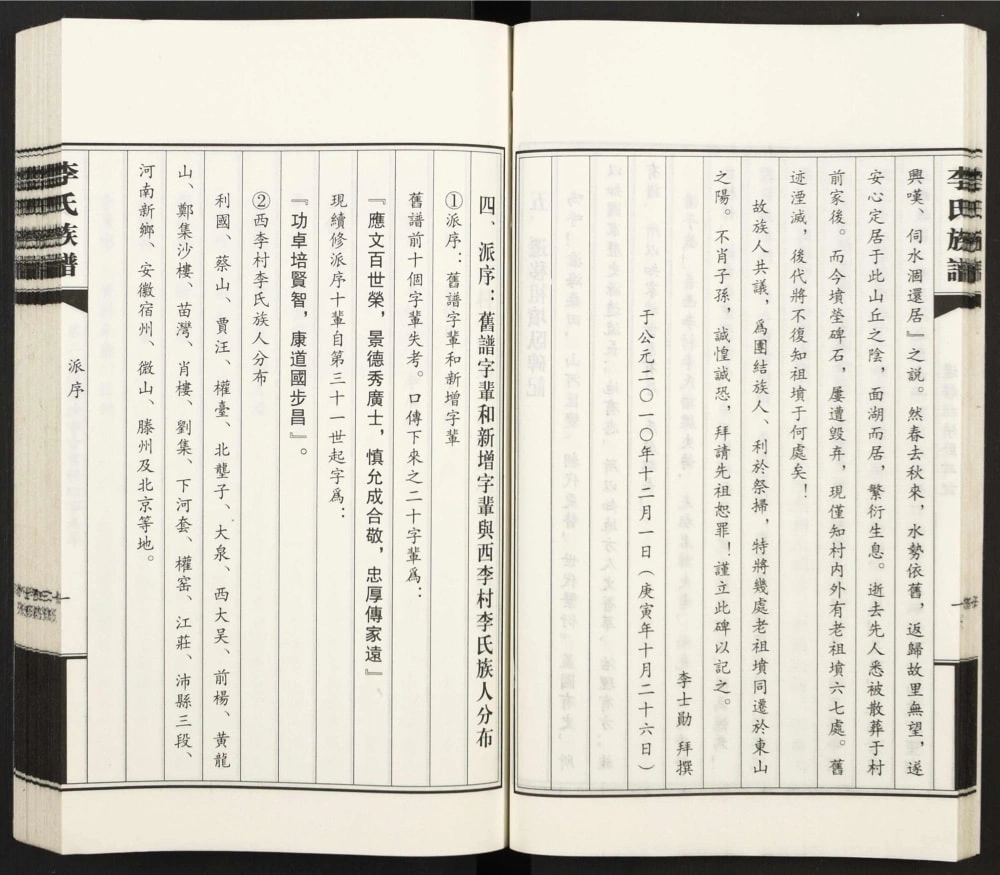 李氏族譜
興嘆、伺水涸還居』之說。然春去秋來，水勢依舊，返歸故里無望，遂
安心定居于此山丘之陰，面湖而居，繁衍生息。逝去先人悉被散葬于村
前家後。而今墳塋碑石，屢遭毀弃，現僅知村内外有老祖墳六七處。舊
迹湮滅，後代將不復知祖墳于何處矣！
故族人共議，爲團結族人、利於祭掃，特將幾處老祖墳同遷於東山
之陽。不肖子孫，誠惶誠恐，拜請先祖恕罪！謹立此碑以記之。
李士勛 拜撰
于公元二〇一〇年十二月一日（庚寅年十月二十六日）
四、派序：舊譜字輩和新增字輩與西李村李氏族人分布
①派序：舊譜字輩和新增字輩
舊譜前十個字輩失考。口傳下來之二十字輩爲：
『應文百世榮，景德秀廣士，慎允成合敬，忠厚傳家遠』
現續修派序十輩自第三十一世起字爲：
『功卓培賢智，康道國步昌』。
②西李村李氏族人分布
利國、蔡山、賈汪、權臺、北壟子、大泉、西大吴、前楊、黄龍
山、鄭集沙樓、苗灣、肖樓、劉集、下河套、權窑、江莊、沛縣三段、
河南新鄉、安徽宿州、微山、滕州及北京等地。
李氏族譜
派序